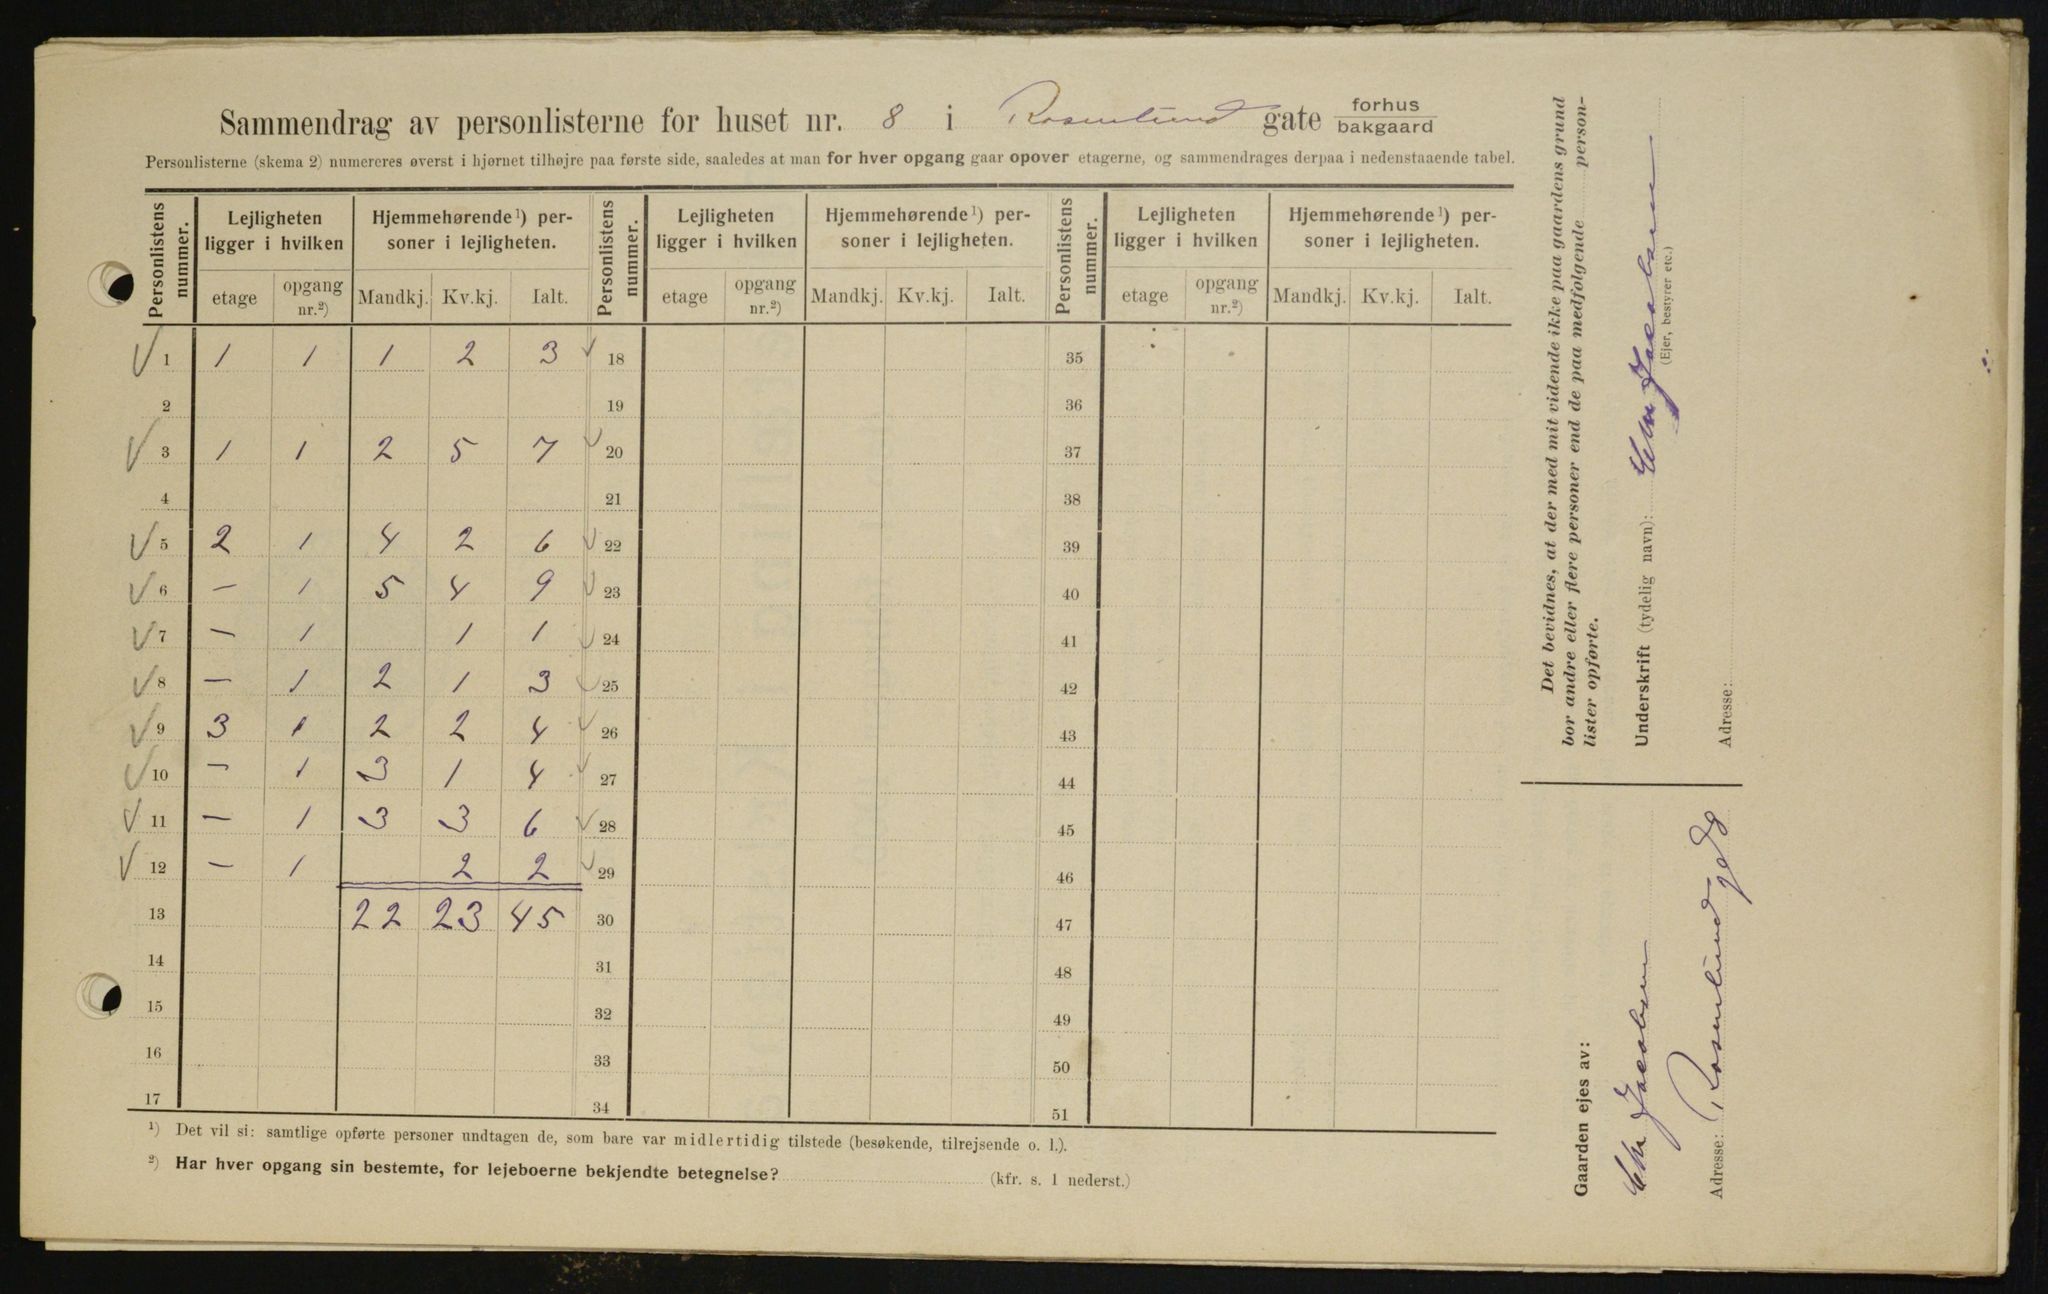 Sammendrag av personlisterne for huset nr. 8 i Rosenlund gate forhus bakgaard
Personlisterne (skema 2) numereres øverst i hjørnet tilhøjre paa første side, saaledes at man for hver opgang gaar opover etagerne, og sammendrages derpaa i nedenstaaende tabel.
Personlistens nummer. Lejligheten ligger i hvilken Hjemmehørende¹) personer i lejligheten. Personlistens nummer. Lejligheten ligger i hvilken Hjemmehørende¹) personer i lejligheten. Personlistens nummer. Lejligheten ligger i hvilken Hjemmehørende¹) personer i lejligheten.
etage opgang nr.²) Mandkj. Kv.kj. Ialt. etage opgang nr.²) Mandkj. Kv.kj. Ialt. etage opgang nr.²) Mandkj. Kv.kj. Ialt.
✓ 1 1 1 1 2 3 ✓ 18 35
2 19 36
✓ 3 1 1 2 5 7 ✓ 20 37
4 21 38
✓ 5 2 1 4 2 6 ✓ 22 39
✓ 6 – 1 5 4 9 ✓ 23 40
✓ 7 – 1 1 1 ✓ 24 41
✓ 8 – 1 2 1 3 ✓ 25 42
✓ 9 3 1 2 2 4 ✓ 26 43
✓ 10 – 1 3 1 4 ✓ 27 44
✓ 11 – 1 3 3 6 ✓ 28 45
✓ 12 – 1 2 2 ✓ 29 46
13 22 23 45 30 47
14 31 48
15 32 49
16 33 50
17 34 51
¹) Det vil si: samtlige opførte personer undtagen de, som bare var midlertidig tilstede (besøkende, tilrejsende o. l.).
²) Har hver opgang sin bestemte, for lejeboerne bekjendte betegnelse? (kfr. s. 1 nederst.)
Det bevidnes, at der med mit vidende ikke paa gaardens grund
bor andre eller flere personer end de paa medfølgende person-
lister opførte.
Underskrift (tydelig navn): Chr Jacobsen
(Ejer, bestyrer etc.)
Adresse:
Gaarden ejes av:
Chr Jacobsen
Adresse: Rosenlundgd 8